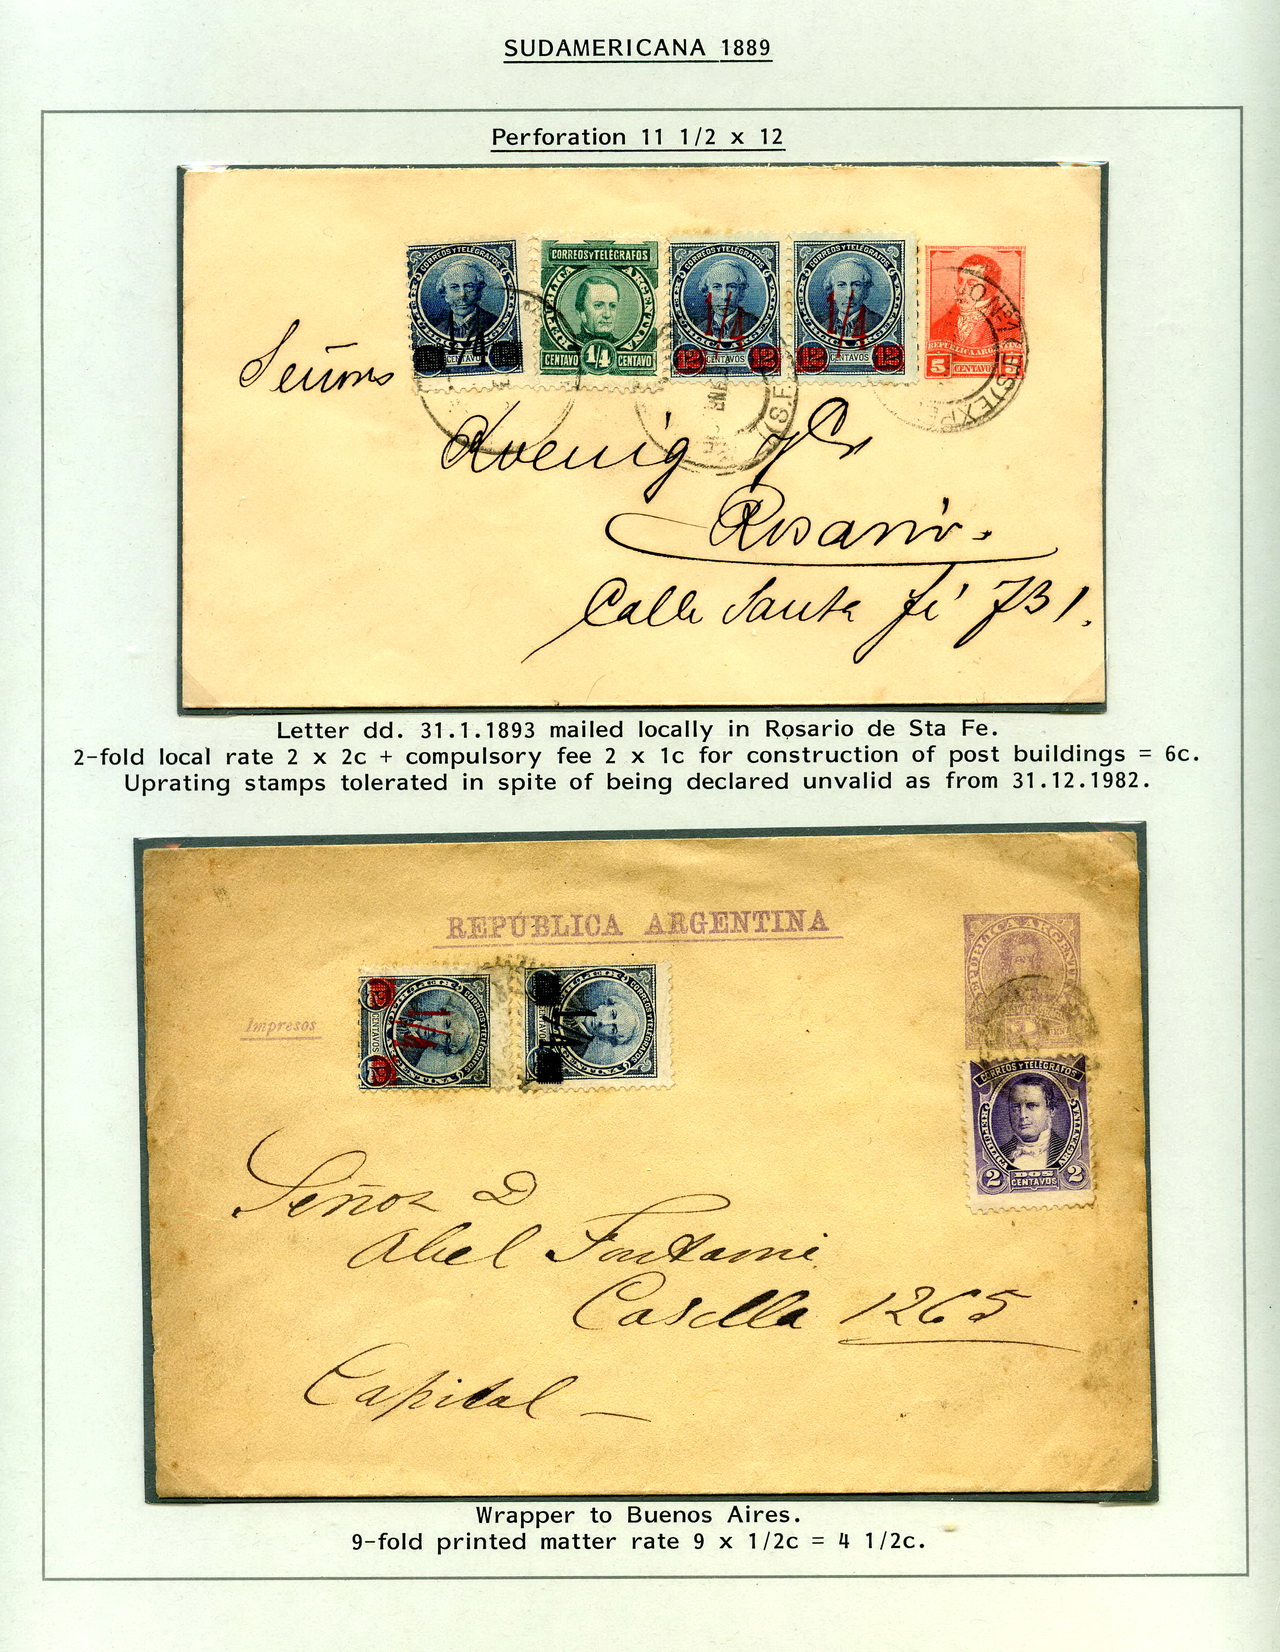 SUDAMERICANA 1889
Perforation 11 1/2 x 12
CORREOS Y TELEGRAFOS
CENTAVOS
CORREOS Y TELÉGRAFOS
REPUBLICA ARGENTINA
CENTAVO 1/4 CENTAVO
CORREOS Y TELEGRAFOS
1/4
12 CENTAVOS 12
CORREOS Y TELEGRAFOS
1/4
12 CENTAVOS 12
REPUBLICA ARGENTINA
5 CENTAVOS
Señores
Koenig y Ca
Rosario.
Calle Santa Fé 731.
Letter dd. 31.1.1893 mailed locally in Rosario de Sta Fe.
2-fold local rate 2 x 2c + compulsory fee 2 x 1c for construction of post buildings = 6c.
Uprating stamps tolerated in spite of being declared unvalid as from 31.12.1982.
REPÚBLICA ARGENTINA
Impresos
REPÚBLICA ARGENTINA
CORREOS Y TELEGRAFOS
CENTAVOS
1/4
CORREOS Y TELEGRAFOS
1/4
CORREOS Y TELÉGRAFOS
REPÚBLICA ARGENTINA
2 DOS CENTAVOS 2
Señor D
Abel Fontaine
Casilla 1265
Capital
Wrapper to Buenos Aires.
9-fold printed matter rate 9 x 1/2c = 4 1/2c.